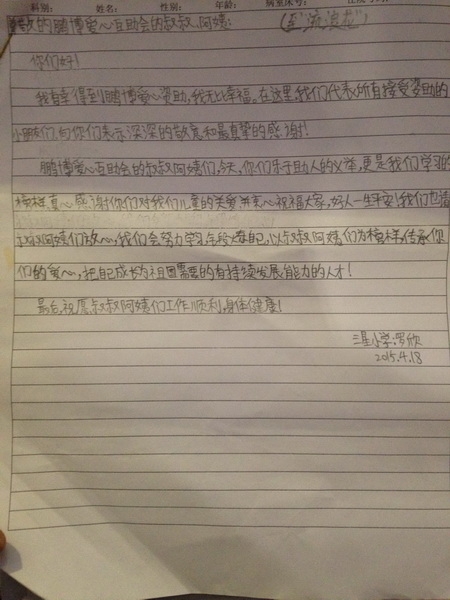 科别: 姓名: 性别: 年龄: 病室床号:
敬的鹏博爱心互助会的叔叔、阿姨: (至“流浪花”)
你们好!
我有幸得到鹏博爱心资助,我无比幸福。在这里,我们代表所有接受资助的
小朋友们向你们表示深深的敬意和最真挚的感谢!
鹏博爱心互助会的叔叔阿姨们,今天,你们乐于助人的义举,更是我们学习的
榜样,真心感谢你们对我们儿童的关爱,并衷心祝福大家,好人一生平安!我们也请
叔叔阿姨们放心,我们会努力学习,以叔叔阿姨们为榜样,传承你
们的爱心,把自己成长为祖国需要的有持续发展能力的人才!
最后,祝愿叔叔阿姨们工作顺利,身体健康!
三星小学:罗欣
2015.4.18